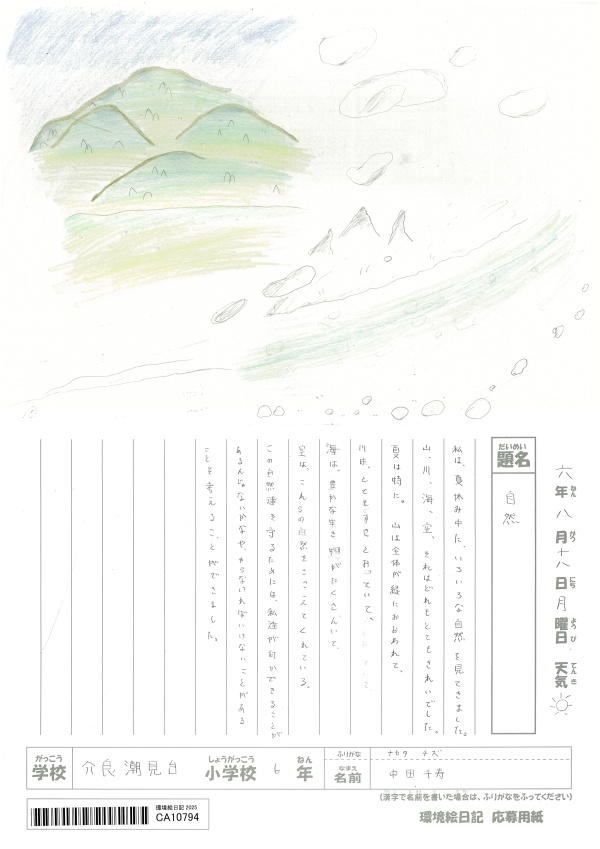 六年八月十八日月曜日 天気
ねん がつ にち ようび てんき
だいめい
題名
自然
私は、夏休み中に、いろいろな自然を見てきました。
山、川、海、空、それはどれもとてもきれいでした。
夏は特に。山は全体が緑におおわれて、
川は、とてもすきとおっていて、
海は、豊かな生き物がたくさんいて、
空は、これらの自然をささえてくれている。
この自然達を守るためには、私達が何かできることが
あるんじゃないかなや、やらなければいけないことがある
ことを考えることができました。
がっこう
学校
介良潮見台
しょうがっこう
小学校
6
ねん
年
ふりがな
ナカタ チズ
なまえ
名前
中田千寿
(漢字で名前を書いた場合は、ふりがなをふってください)
環境絵日記 2025
CA10794
環境絵日記 応募用紙